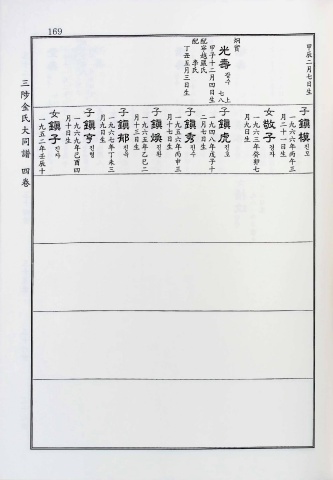 169
三陟金氏大同譜 四卷
甲辰二月七日生
炯賞
光壽 광수 上七八
甲子十二月四日生
配寧越嚴氏
配李氏
丁丑五月三日生
子 鎭模 진모
一九六六年丙午三
月二十一日生
女 敬子 경자
一九六三年癸卯七
月九日生
子 鎭虎 진호
一九四八年戊子十
二月七日生
子 鎭秀 진수
一九五六年丙申三
月十七日生
子 鎭煥 진환
一九六五年乙巳二
月十三日生
子 鎭郁 진욱
一九六七年丁未三
月九日生
子 鎭亨 진형
一九六九年己酉四
月十日生
女 鎭子 진자
一九五二年壬辰十